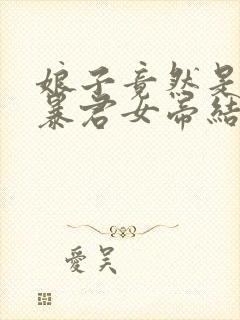 娘子竟然是
暴君女帝結
愛吴